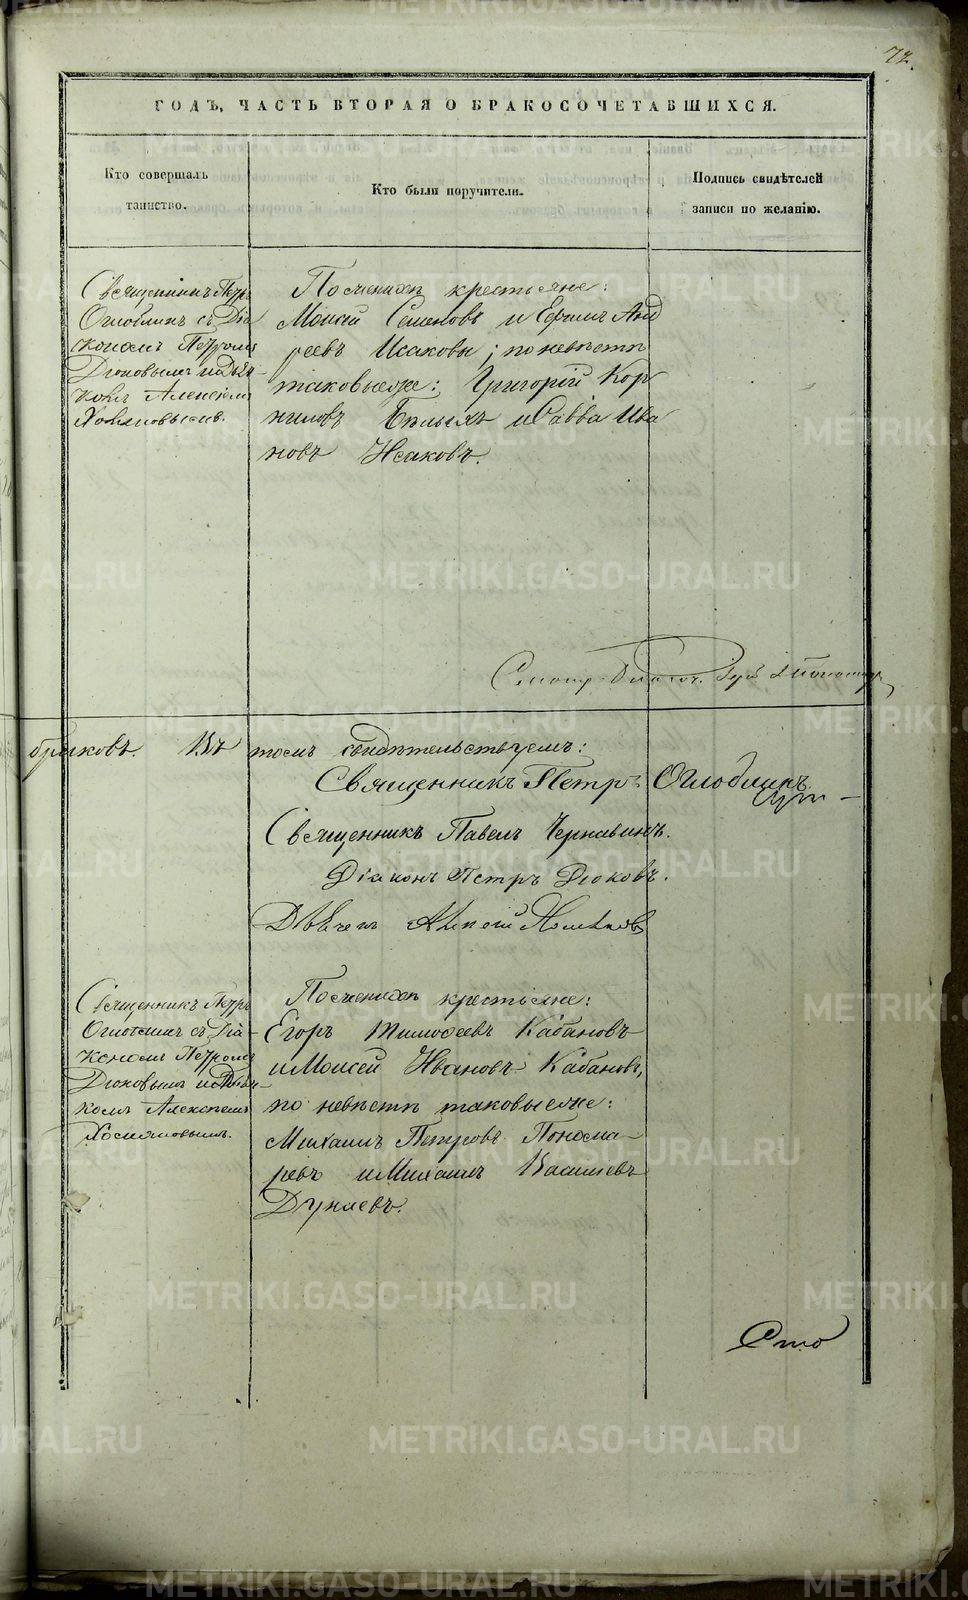 72.
ГОДЪ, ЧАСТЬ ВТОРАЯ О БРАКОСОЧЕТАВШИХСЯ.
Кто совершалъ
таинство.
Кто были поручители.
Подпись свидѣтелей
записи по желанію.
Священникъ Петръ
Оглоблинъ съ Діа
кономъ Петромъ
Дюковымъ и Дьяч-
комъ Алексѣемъ
По женихѣ крестьяне:
Моисей Семеновъ и Ефимъ Анд
реевъ Исаковы; по невѣстѣ
таковыеже: Григорій Кор
ниловъ Бѣлыхъ и Савва Ива
новъ Исаковъ.
браковъ. Въ томъ свидѣтельствуемъ:
Священникъ Петръ Оглоблинъ
Священникъ Павелъ Чернавинъ.
Діаконъ Петръ Дюковъ.
Дьячекъ Алексѣй
Священникъ Петръ
съ Діа-
кономъ Петромъ
Дюковымъ и Дьяч-
комъ Алексѣемъ
По женихѣ крестьяне:
Егоръ Тимофеевъ Кабановъ
и Моисей Ивановъ Кабановъ,
по невѣстѣ таковыеже:
Михаилъ Петровъ Понома-
ревъ и Михаилъ Васильевъ
Дунаевъ.
Сто
METRIKI.GASO-URAL.RU